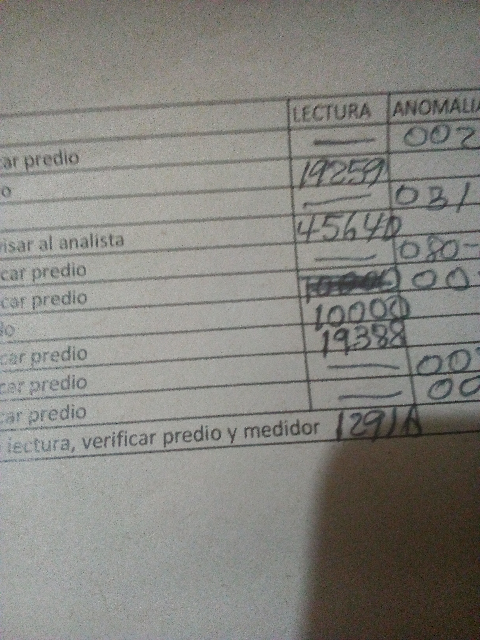 LECTURA ANOMALIA
car predio — 002
o 19259
— 031
visar al analista 45640
car predio — 080-
car predio 00
do 10000
19388
car predio — 00
car predio — 00
car predio
lectura, verificar predio y medidor